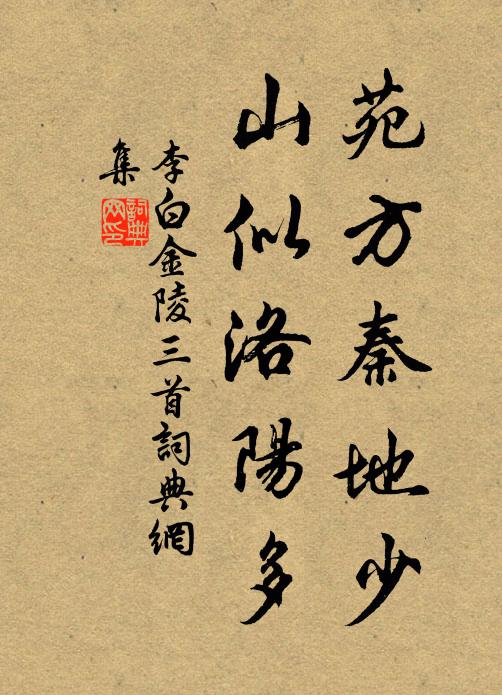 苑方秦地少
山似洛陽多
李白金陵三首詞典網
集
詞典
网印